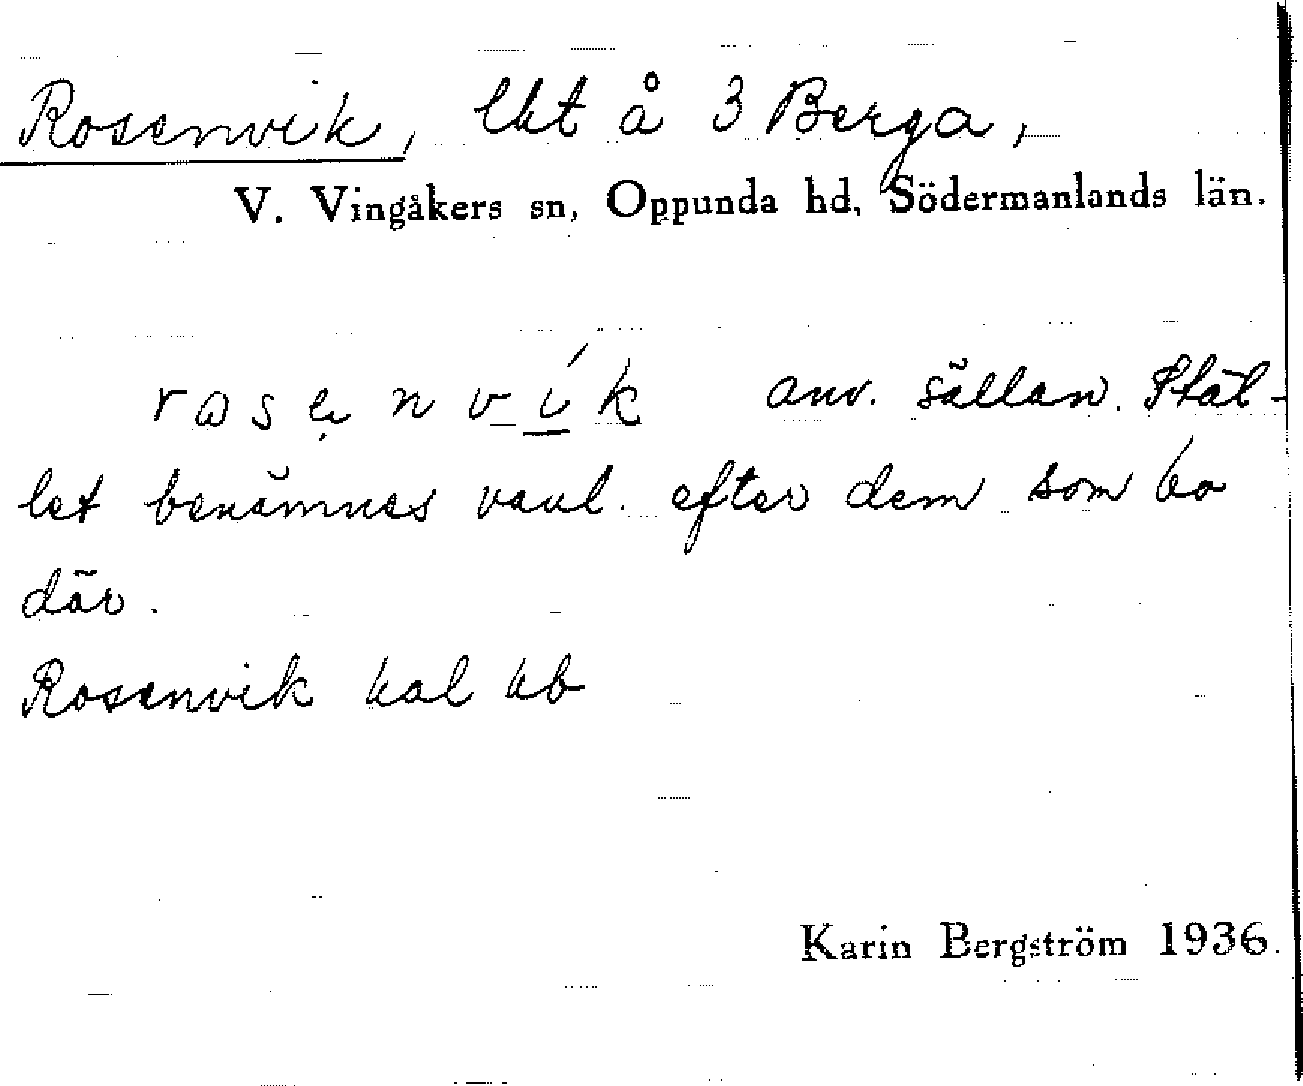 Rosenvik, lht å 3 Berga,
V. Vingåkers sn, Oppunda hd, Södermanlands län.
rosęnvík anv. sällan. Stäl-
let benämnes vanl. efter dem som bo
där.
Rosenvik hal kb
Karin Bergström 1936.